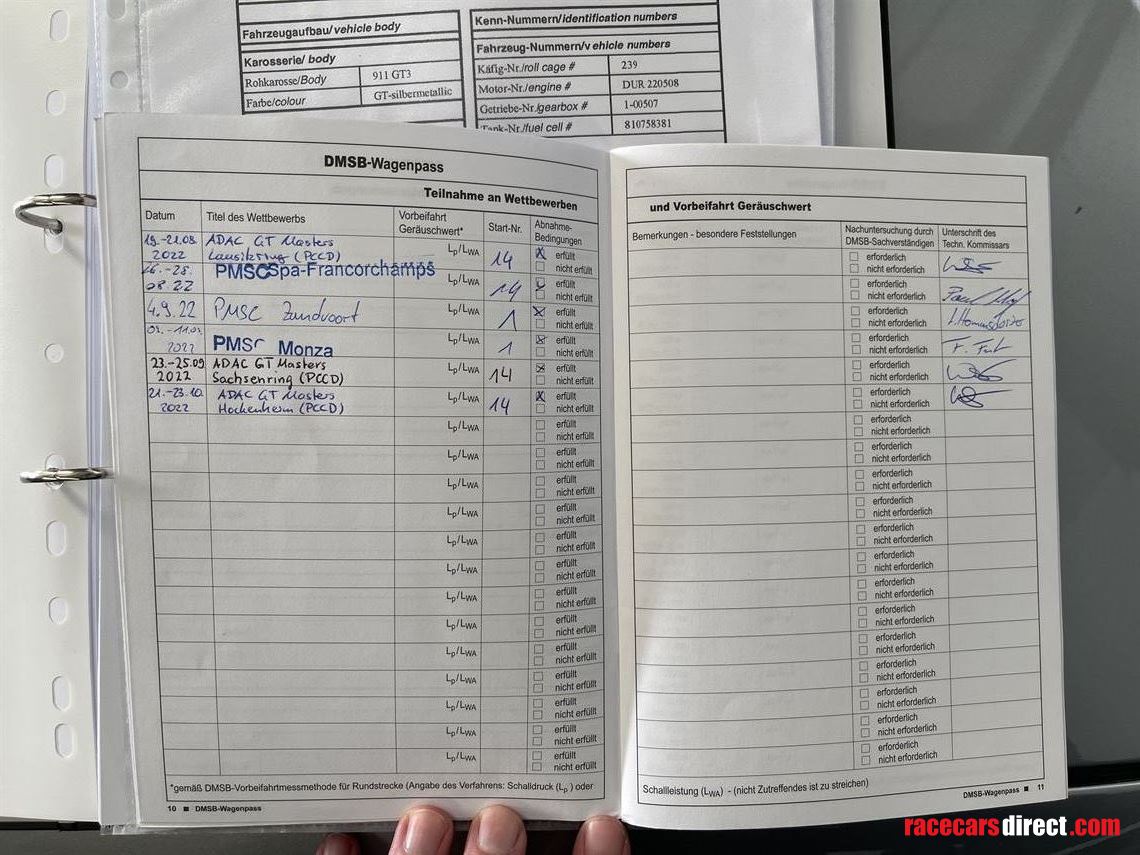 Fahrzeugaufbau/vehicle body
Karosserie/ body
Rohkarosse/Body 911 GT3
Farbe/colour GT-silbermetallic
Kenn-Nummern/identification numbers
Fahrzeug-Nummern/v ehicle numbers
Käfig-Nr./roll cage # 239
Motor-Nr./engine # DUR 220508
Getriebe-Nr./gearbox # 1-00507
Tank-Nr./fuel cell # 810758381
DMSB-Wagenpass
Teilnahme an Wettbewerben
Datum Titel des Wettbewerbs Vorbeifahrt Geräuschwert* Start-Nr. Abnahme-Bedingungen
19.-21.08. ADAC GT Masters Lp/LWA 14 erfüllt
2022 Lausitzring (PCCD) nicht erfüllt
26.-28. PMSC Spa-Francorchamps Lp/LWA 14 erfüllt
08.22 nicht erfüllt
4.9.22 PMSC Zandvoort Lp/LWA 1 erfüllt
nicht erfüllt
2022 PMSC Monza Lp/LWA 1 erfüllt
nicht erfüllt
23.-25.09 ADAC GT Masters Lp/LWA 14 erfüllt
2022 Sachsenring (PCCD) nicht erfüllt
21.-23.10. ADAC GT Masters Lp/LWA 14 erfüllt
2022 Hockenheim (PCCD) nicht erfüllt
Lp/LWA erfüllt
nicht erfüllt
Lp/LWA erfüllt
nicht erfüllt
Lp/LWA erfüllt
nicht erfüllt
Lp/LWA erfüllt
nicht erfüllt
Lp/LWA erfüllt
nicht erfüllt
Lp/LWA erfüllt
nicht erfüllt
Lp/LWA erfüllt
nicht erfüllt
Lp/LWA erfüllt
nicht erfüllt
Lp/LWA erfüllt
nicht erfüllt
Lp/LWA erfüllt
nicht erfüllt
Lp/LWA erfüllt
nicht erfüllt
Lp/LWA erfüllt
nicht erfüllt
Lp/LWA erfüllt
nicht erfüllt
*gemäß DMSB-Vorbeifahrtmessmethode für Rundstrecke (Angabe des Verfahrens: Schalldruck (Lp ) oder
10 ■ DMSB-Wagenpass
und Vorbeifahrt Geräuschwert
Bemerkungen - besondere Feststellungen Nachuntersuchung durch DMSB-Sachverständigen Unterschrift des Techn. Kommissars
erforderlich
nicht erforderlich
erforderlich
nicht erforderlich
erforderlich
nicht erforderlich
erforderlich
nicht erforderlich
erforderlich
nicht erforderlich
erforderlich
nicht erforderlich
erforderlich
nicht erforderlich
erforderlich
nicht erforderlich
erforderlich
nicht erforderlich
erforderlich
nicht erforderlich
erforderlich
nicht erforderlich
erforderlich
nicht erforderlich
erforderlich
nicht erforderlich
erforderlich
nicht erforderlich
erforderlich
nicht erforderlich
erforderlich
nicht erforderlich
erforderlich
nicht erforderlich
erforderlich
nicht erforderlich
erforderlich
nicht erforderlich
Schallleistung (LWA) - (nicht Zutreffendes ist zu streichen)
DMSB-Wagenpass ■ 11
racecarsdirect.com